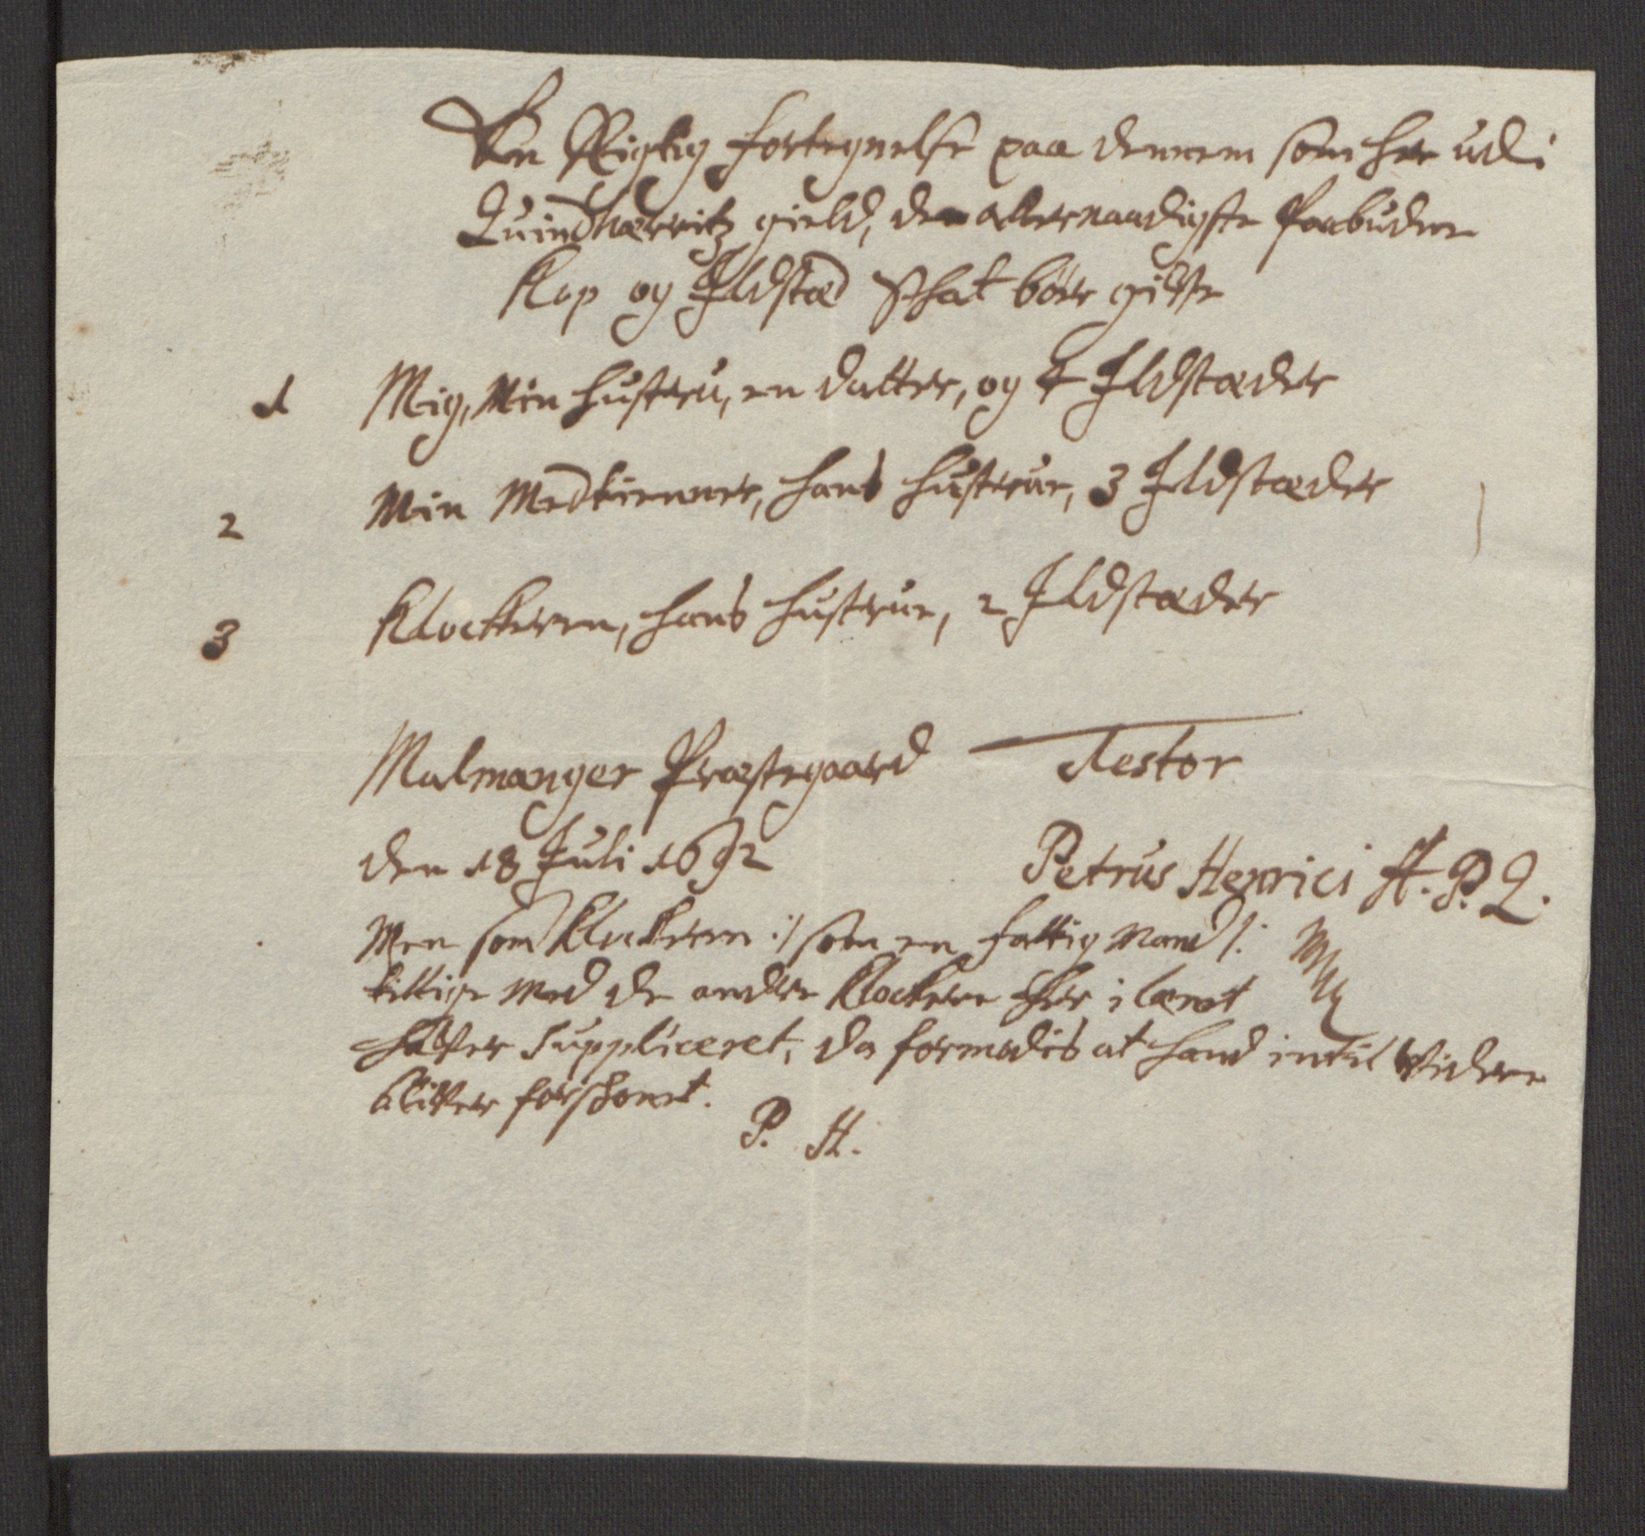 En Rigtig fortegnelse paa dennem som her udi
Quindherritz gield, den allernaadigste Paabudne
Kop og Ildstæd Skat bör gifve
1 Mig, Min hustru, en datter, og 4 Ildstæder
2 Min Medtienner, hans hustrue, 3 Ildstæder
3 Klockeren, hans hustrue, 2 Ildstæder
Malmanger Præstegaard Testor
den 18 Juli 1692 Petrus Henrici H. P. Q.
Men som Klockeren :/ som en fattig Mand /:
tillige med de andre Klockere her i lænet
hafver Suppliceret, da formodis at hand intil Videre
blifver forskonet.
P. H.